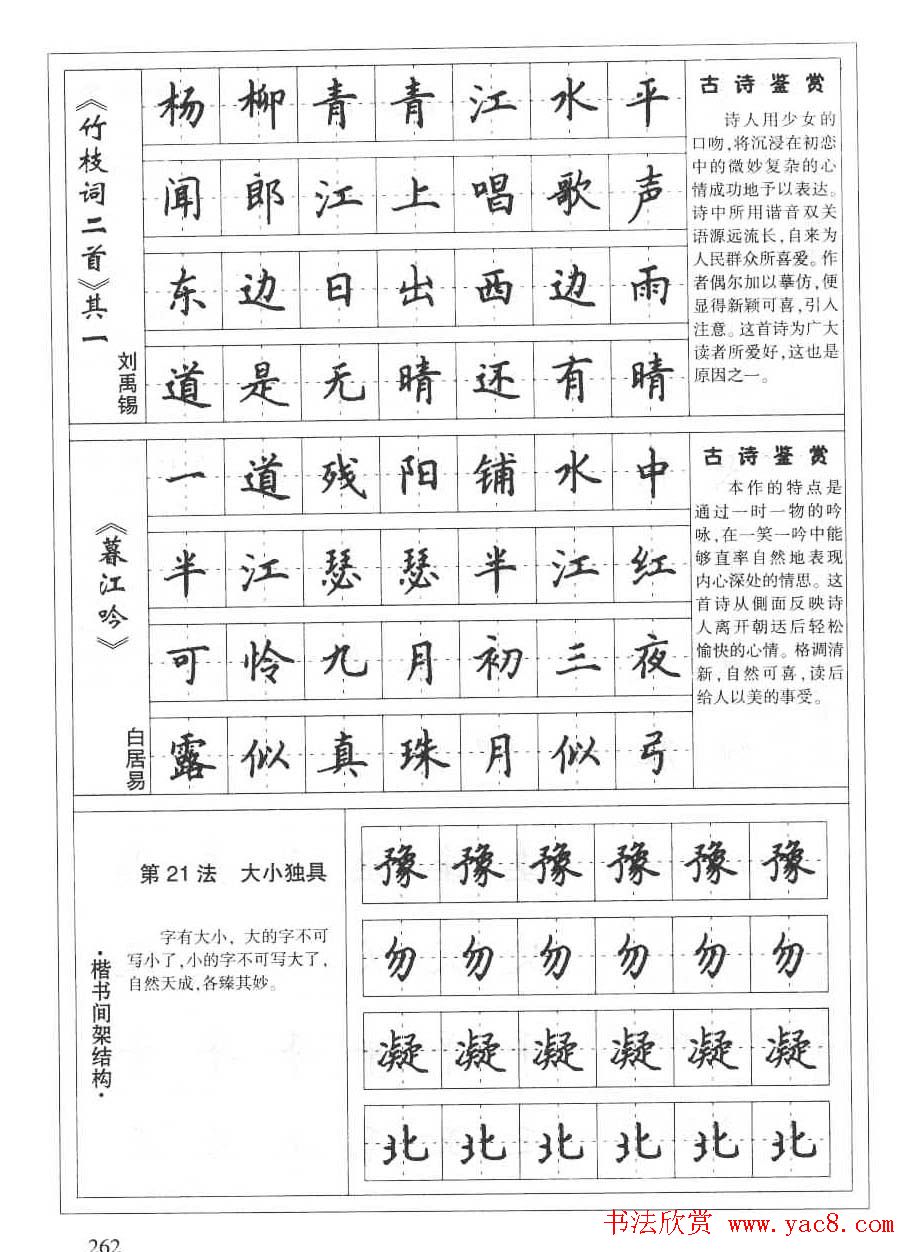 《竹枝词二首》其一
刘禹锡
杨柳青青江水平
闻郎江上唱歌声
东边日出西边雨
道是无晴还有晴
古诗鉴赏
诗人用少女的
口吻,将沉浸在初恋
中的微妙复杂的心
情成功地予以表达。
诗中所用谐音双关
语源远流长,自来为
人民群众所喜爱。作
者偶尔加以摹仿,便
显得新颖可喜,引人
注意。这首诗为广大
读者所爱好,这也是
原因之一。
《暮江吟》
白居易
一道残阳铺水中
半江瑟瑟半江红
可怜九月初三夜
露似真珠月似弓
古诗鉴赏
本作的特点是
通过一时一物的吟
咏,在一笑一吟中能
够直率自然地表现
内心深处的情思。这
首诗从侧面反映诗
人离开朝迗后轻松
愉快的心情。格调清
新,自然可喜,读后
给人以美的事受。
·楷书间架结构·
第21法 大小独具
字有大小，大的字不可
写小了,小的字不可写大了,
自然天成,各臻其妙。
豫豫豫豫豫豫
勿勿勿勿勿勿
凝凝凝凝凝凝
北北北北北北
262
书法欣赏 www.yac8.com